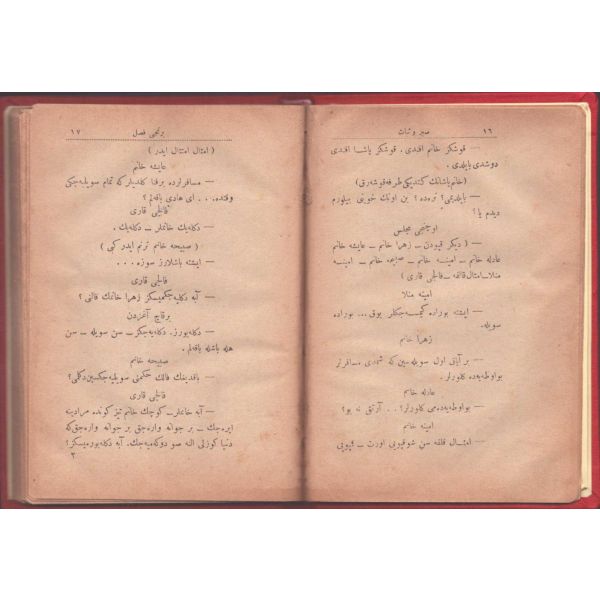 ١٦ صبر وثبات
— قوشكز خانم افندی . قوشكز پاشا افندی
دوشدی بایلدی .
(خانم پاشانك كیتدیكی طرفه قوشه‌رق)
— بایلدیمی؟ نره‌ده؟ بن اونك خوینی بیلورم
دیدم یا!
اوچنجی مجلس
( دیكر قپودن — زهرا خانم — عایشه خانم
عادله خانم — امینه خانم — صبیحه خانم — امینه
منلا — امثال قالفه — فالجی قاری )
امینه منلا
— ایشته بوراده كیمسه‌جكلر یوق ... بوراده
سویله .
زهرا خانم
— بر آیاق اول سویله‌سین كه شمدی مسافرلر
بواوطه‌یه‌ده كلورلر .
عادله خانم
— بواوطه‌یه‌ده‌می كلورلر؟ . . آرتق نه بو؟
امینه خانم
— امثال قلفه سن شوقپویی اورت — قپویی
برنجی فصل ١٧
( امثال امتثال ایدر )
عایشه خانم
— مسافرلرده برفنا كلدیلر كه تمام سویلیه‌جكی
وقتده . . . ای هادی باقه‌لم ؟
فالجی قاری
— دكله‌یك خانملر — دكله‌یك .
( صبیحه خانم ترنم ایدر كبی )
— ایشته باشلارز سوزه . . . .
فالجی قاری
— آبه دكلیه‌جكمیسكز زهرا خانمك فالنی ؟
برقاچ آغزدن
— دكله‌یورز . دكلیه‌جكز — سن سویله — سن
هله باشله باقه‌لم .
صبیحه خانم
— باقدیغك فالك حكمنی سویلیه‌جكسین دكلمی؟
فالجی قاری
— آبه خانملر — كوچك خانم تیز كونده مرادینه
ایره‌جك — بر جوانه واره‌جق بر جوانه واره‌جق كه
دنیا كوزلی النه صو دوكه‌میه‌جك . آبه دكله‌یورمیسكز؟
٢